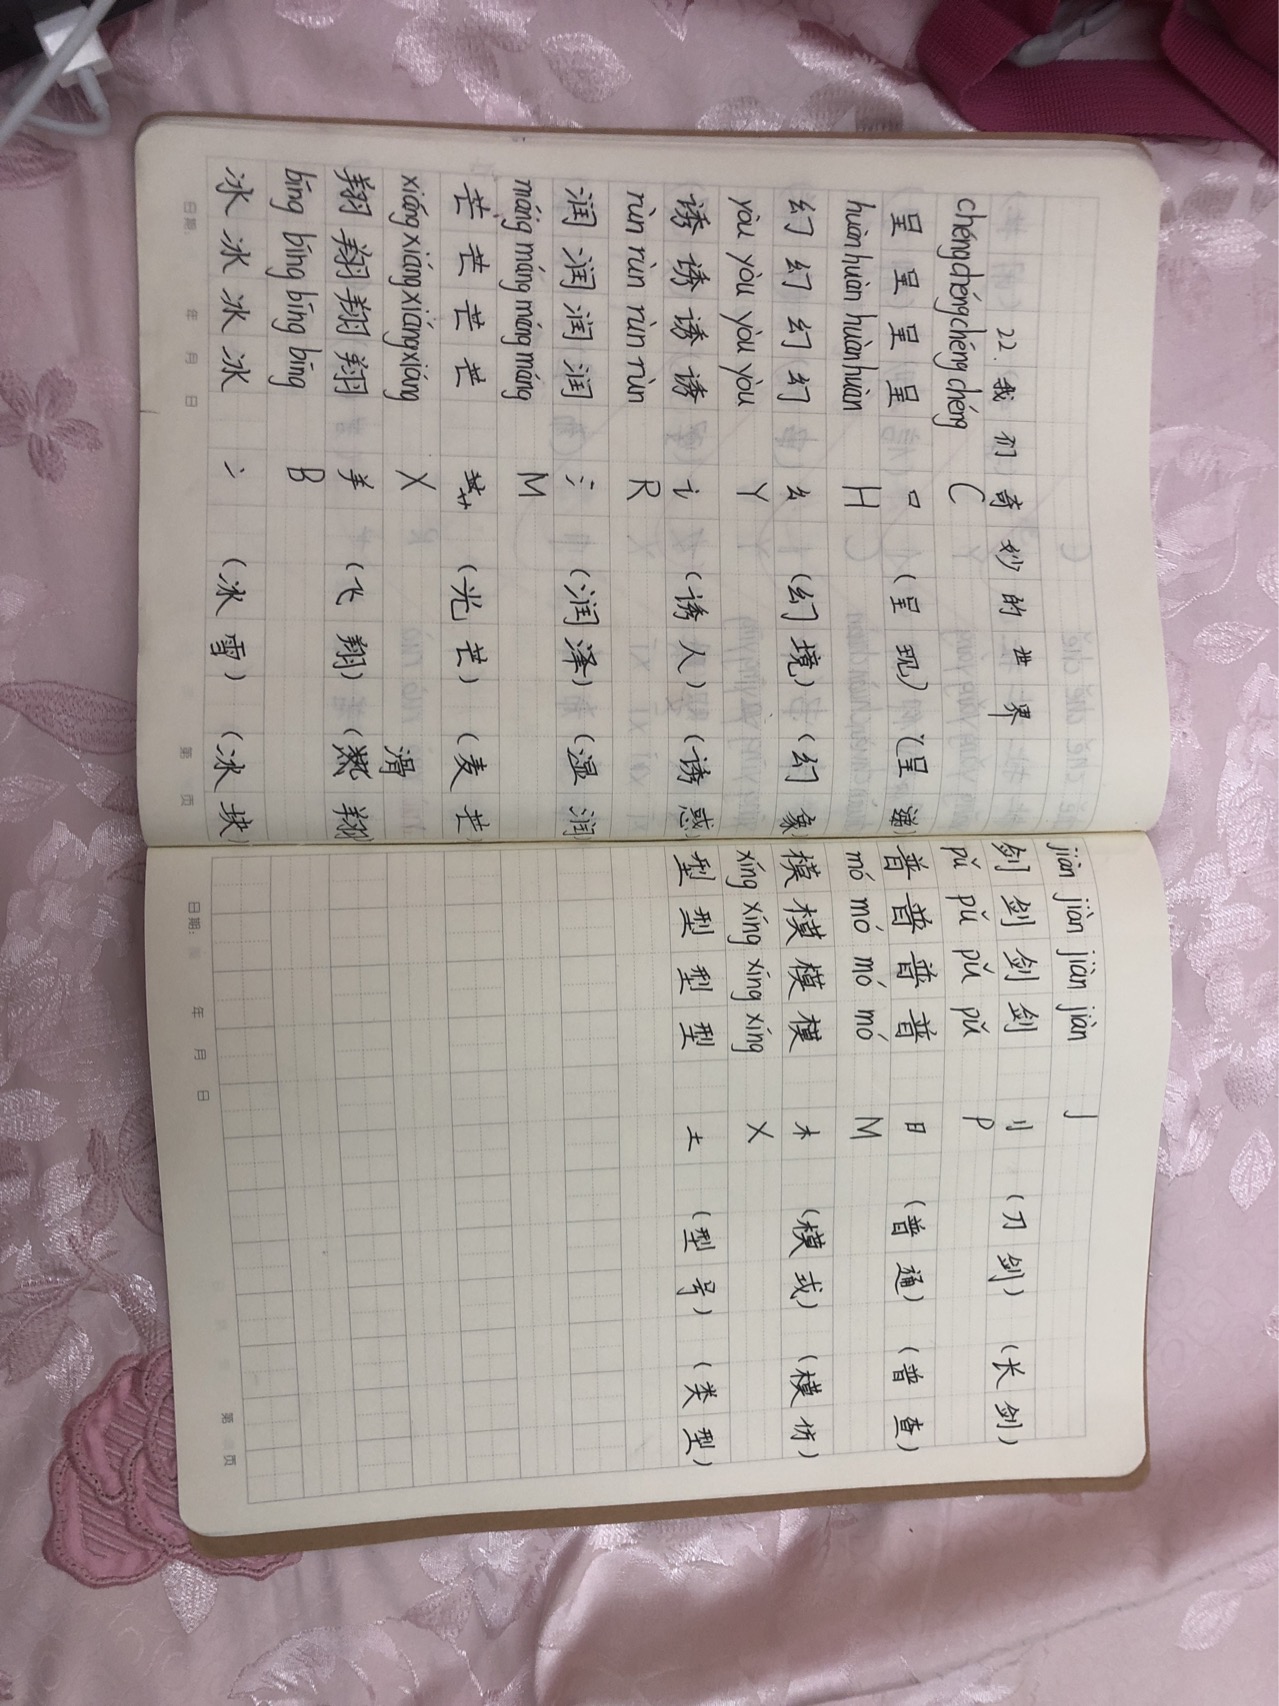 22.我们奇妙的世界
chéng chéng chéng chéng C
呈呈呈呈 口 (呈现) (呈递)
huàn huàn huàn huàn H
幻幻幻幻 幺 (幻境) (幻象)
yòu yòu yòu yòu Y
诱诱诱诱 讠 (诱人) (诱惑)
rùn rùn rùn rùn R
润润润润 氵 (润泽) (湿润)
máng máng máng máng M
芒芒芒芒 艹 (光芒) (麦芒)
xiáng xiáng xiáng xiáng X 滑
翔翔翔翔 羊 (飞翔) (翔)
bīng bīng bīng bīng B
冰冰冰冰 冫 (冰雪) (冰块)
日期: 年 月 日 第 页
jiàn jiàn jiàn jiàn J
剑剑剑剑 刂 (刀剑) (长剑)
pǔ pǔ pǔ pǔ P
普普普普 日 (普通) (普查)
mó mó mó mó M
模模模模 木 (模或) (模仿)
xíng xíng xíng xíng X
型型型型 土 (型号) (类型)
日期: 年 月 日 第 页